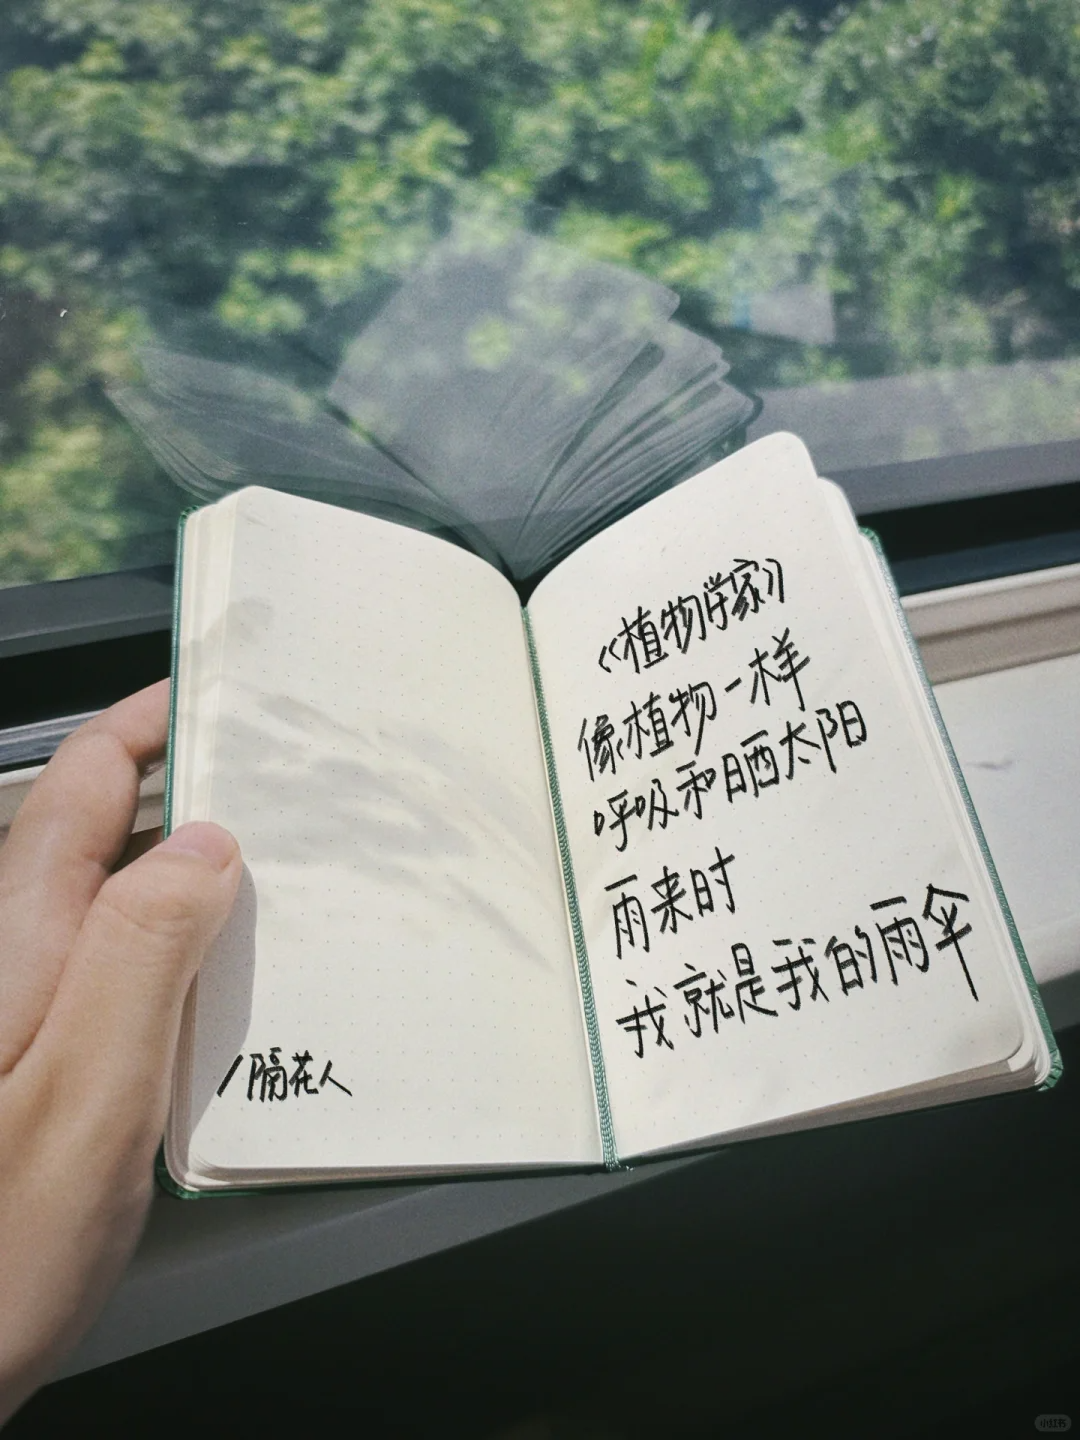 《植物学家》
像植物一样
呼吸和晒太阳
雨来时
我就是我的雨伞
/隔花人
小红书